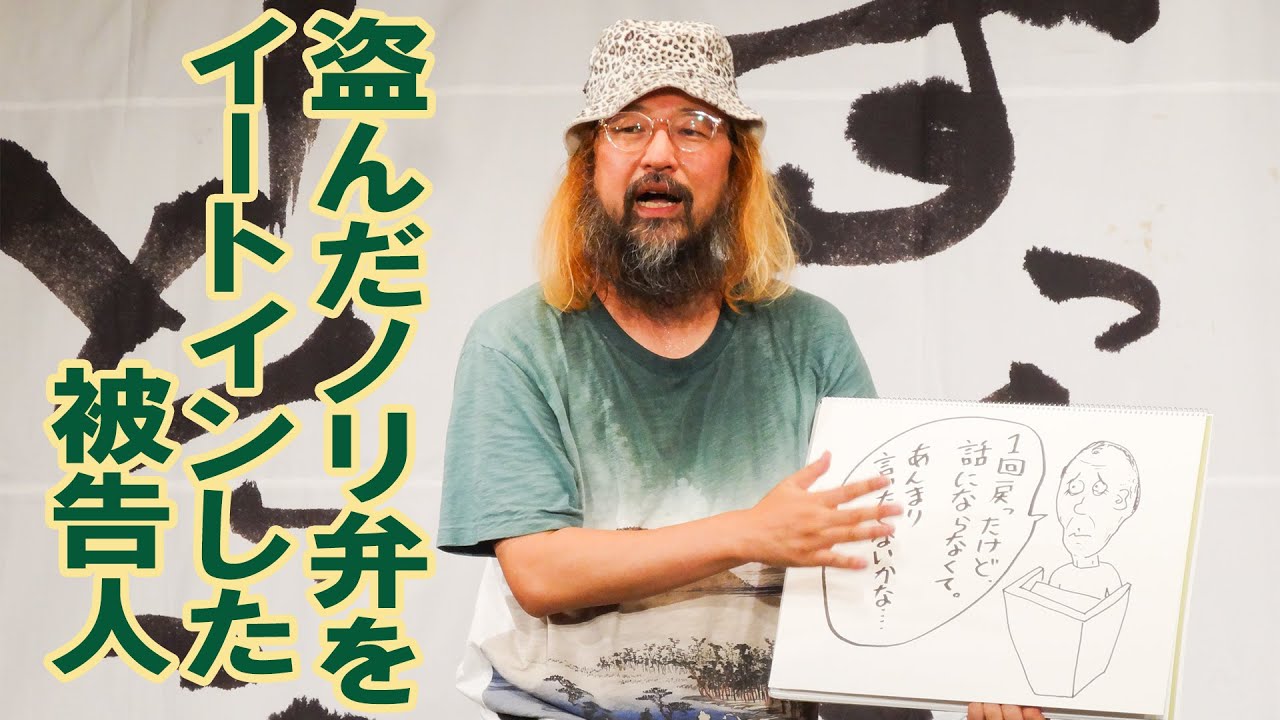 盗んだノリ弁を
イートインした
被告人
1回戻ったけど、
話にならなくて。
あんまり
言いたくないかな…